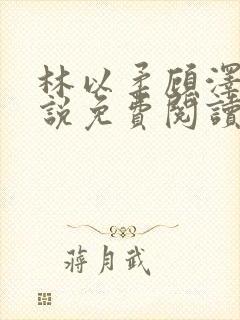 林以柔顧澤
說免費閱讀
蔣月武